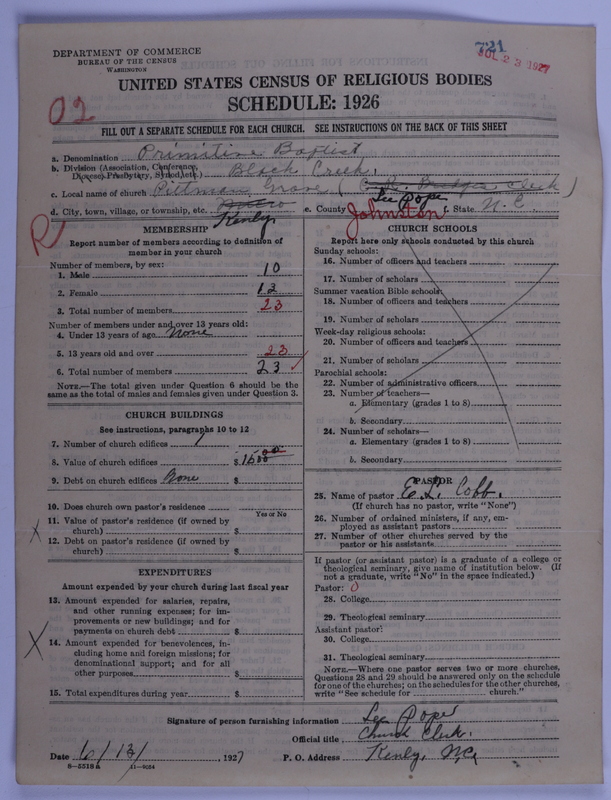 DEPARTMENT OF COMMERCE
BUREAU OF THE CENSUS
WASHINGTON
721
JUL 23 1927
UNITED STATES CENSUS OF RELIGIOUS BODIES
SCHEDULE: 1926
02
FILL OUT A SEPARATE SCHEDULE FOR EACH CHURCH. SEE INSTRUCTIONS ON THE BACK OF THIS SHEET
a. Denomination Primitive Baptist
b. Division (Association, Conference, Diocese, Presbytery, Synod, etc.) Black Creek
c. Local name of church Pittman Grove
Lee Pope
d. City, town, village, or township, etc. Kenly e. County Johnston f. State N. C.
R
MEMBERSHIP
Report number of members according to definition of member in your church
Number of members, by sex:
1. Male 10
2. Female 13
3. Total number of members 23
Number of members under and over 13 years old:
4. Under 13 years of age None
5. 13 years old and over 23
6. Total number of members 23
NOTE.—The total given under Question 6 should be the same as the total of males and females given under Question 3.
CHURCH BUILDINGS
See instructions, paragraphs 10 to 12
7. Number of church edifices 1
8. Value of church edifices $ 1500
9. Debt on church edifices None $
10. Does church own pastor's residence
Yes or No
X 11. Value of pastor's residence (if owned by church) $
12. Debt on pastor's residence (if owned by church) $
EXPENDITURES
Amount expended by your church during last fiscal year
13. Amount expended for salaries, repairs, and other running expenses; for improvements or new buildings; and for payments on church debt $
X 14. Amount expended for benevolences, including home and foreign missions; for denominational support; and for all other purposes $
15. Total expenditures during year $
CHURCH SCHOOLS
Report here only schools conducted by this church
Sunday schools:
16. Number of officers and teachers
17. Number of scholars
Summer vacation Bible schools:
18. Number of officers and teachers
19. Number of scholars
Week-day religious schools:
20. Number of officers and teachers
21. Number of scholars
Parochial schools:
22. Number of administrative officers
23. Number of teachers—
a. Elementary (grades 1 to 8)
b. Secondary
24. Number of scholars—
a. Elementary (grades 1 to 8)
b. Secondary
PASTOR
25. Name of pastor E. L. Cobb.
(If church has no pastor, write "None")
26. Number of ordained ministers, if any, employed as assistant pastors
27. Number of other churches served by the pastor or his assistants
If pastor (or assistant pastor) is a graduate of a college or theological seminary, give name of institution below. (If not a graduate, write "No" in the space indicated.)
Pastor: 0
28. College
29. Theological seminary
Assistant pastor:
30. College
31. Theological seminary
NOTE.—Where one pastor serves two or more churches, Questions 28 and 29 should be answered only on the schedule for one of the churches; on the schedules for the other churches, write "See schedule for church."
Signature of person furnishing information Lee Pope
Official title Church Clerk.
Date 6/13/ 1927 P. O. Address Kenly, N.C.
8—5518a 11—9054